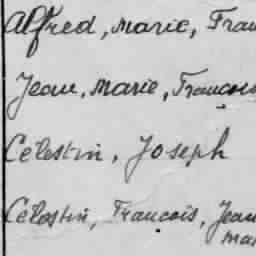 Alfred, Marie, Fran
Jean, Marie, Francois
Célestin, Joseph
Célestin, Francois, Jean
Mar